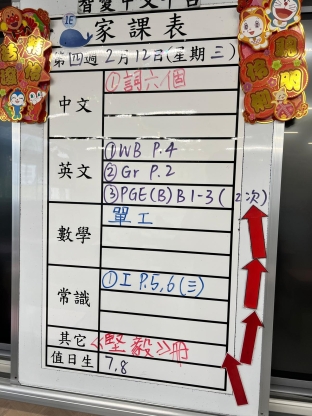 智愛中文平台
1E
家課表
第四週 2月12日(星期三)
中文 ①詞六個
英文 ①WB P.4
②Gr P.2
③PGE(B) B1-3 (2次)
數學 單工
常識 ①I P.5,6(三)
其它 《堅毅》冊
值日生 7,8